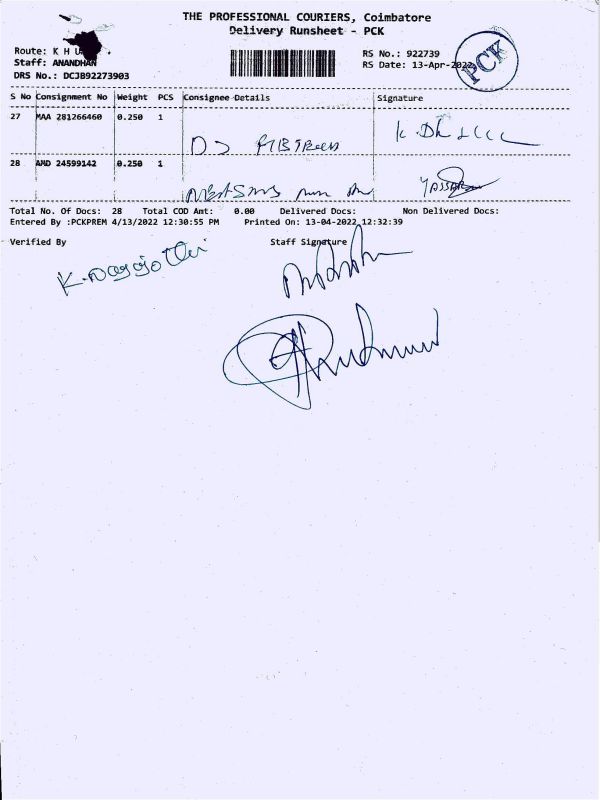 THE PROFESSIONAL COURIERS, Coimbatore
Delivery Runsheet - PCK
Route: K H
Staff: ANANDHAN
DRS No.: DCJB92273903
RS No.: 922739
RS Date: 13-Apr-2022
PCK
S No Consignment No Weight PCS Consignee Details Signature
27 MAA 281266460 0.250 1
28 AMD 24599142 0.250 1
Total No. Of Docs: 28 Total COD Amt: 0.00 Delivered Docs: Non Delivered Docs:
Entered By :PCKPREM 4/13/2022 12:30:55 PM Printed On: 13-04-2022 12:32:39
Verified By Staff Signature